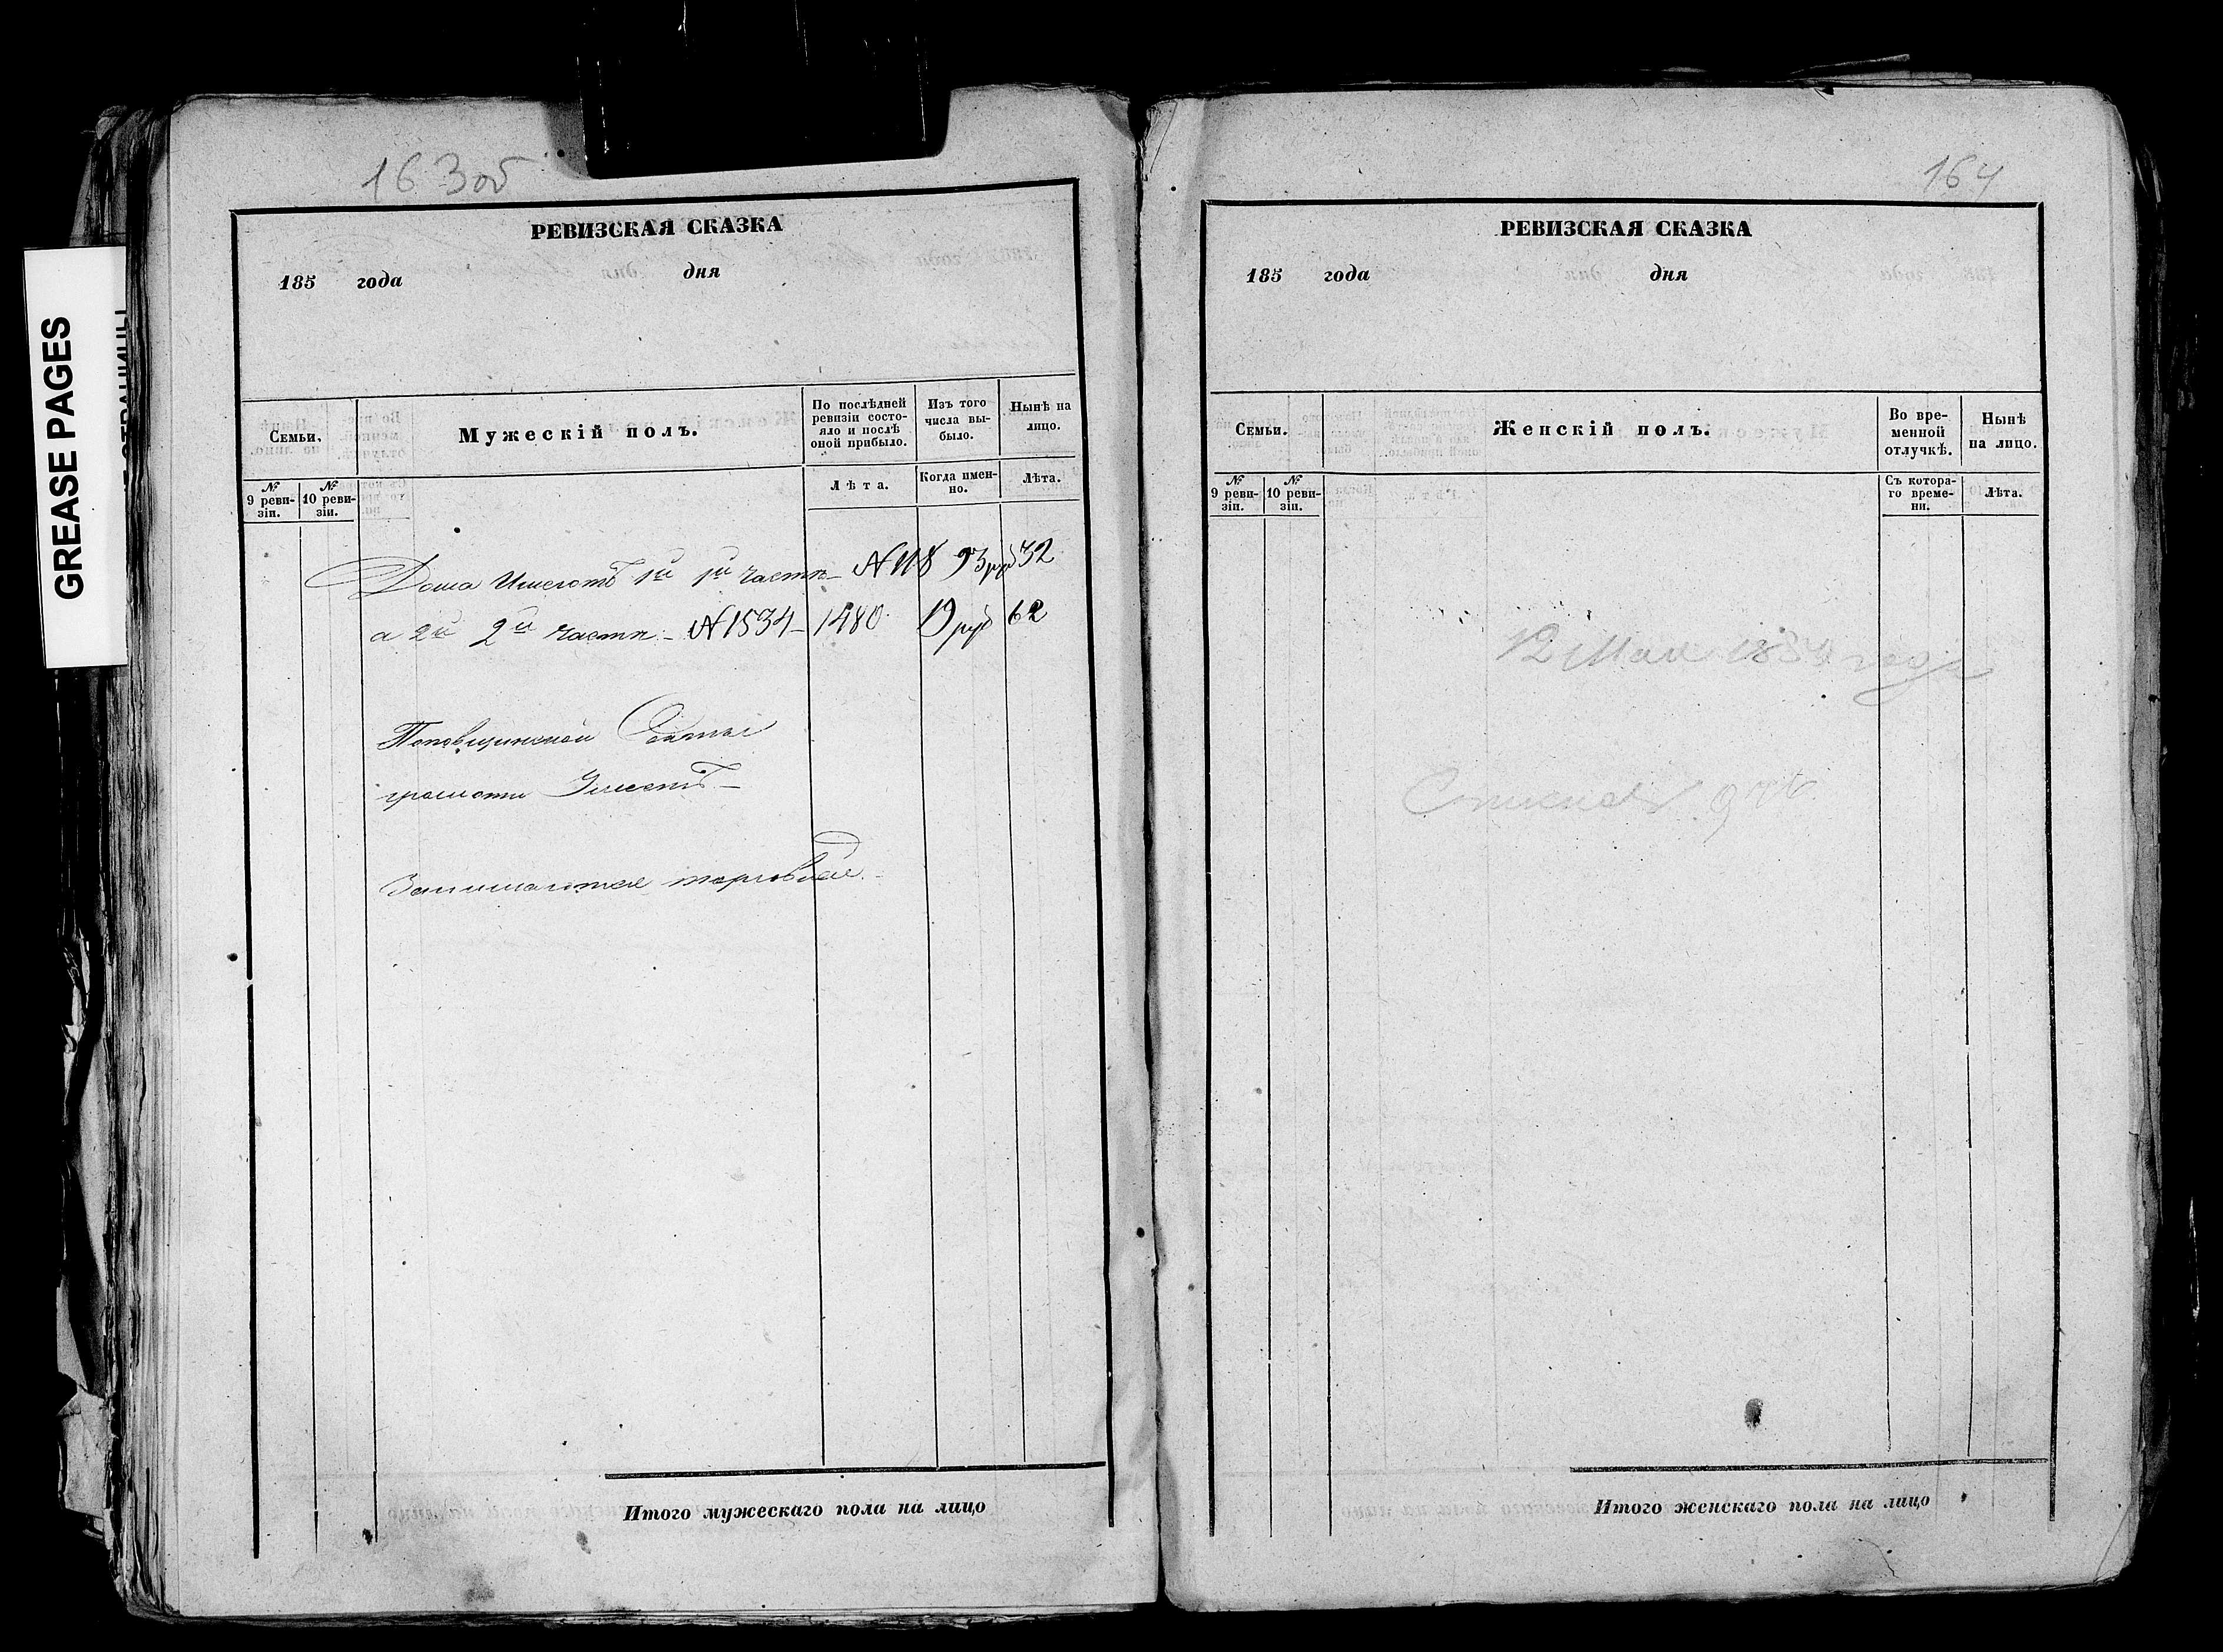 GREASE PAGES
163об
РЕВИЗСКАЯ СКАЗКА
185 года дня
Семьи.
Мужескій полъ.
По послѣдней ревизіи состояло и послѣ оной прибыло.
Изъ того числа выбыло.
Нынѣ на лицо.
№ 9 ревизіи.
№ 10 ревизіи.
Лѣта.
Когда именно.
Лѣта.
Дома Имеютъ 1й 1й части № 118 93 ру 32
а 2й 2й части - № 1534 - 1480 19 ру 62
Поповщинской Секты
грамоти Умеетъ -
Занимаются торговлею
Итого мужескаго пола на лицо
164
РЕВИЗСКАЯ СКАЗКА
185 года дня
Семьи.
Женскій полъ.
Во временной отлучкѣ.
Нынѣ на лицо.
№ 9 ревизіи.
№ 10 ревизіи.
Съ котораго времени.
Лѣта.
12 Мая года
Итого женскаго пола на лицо